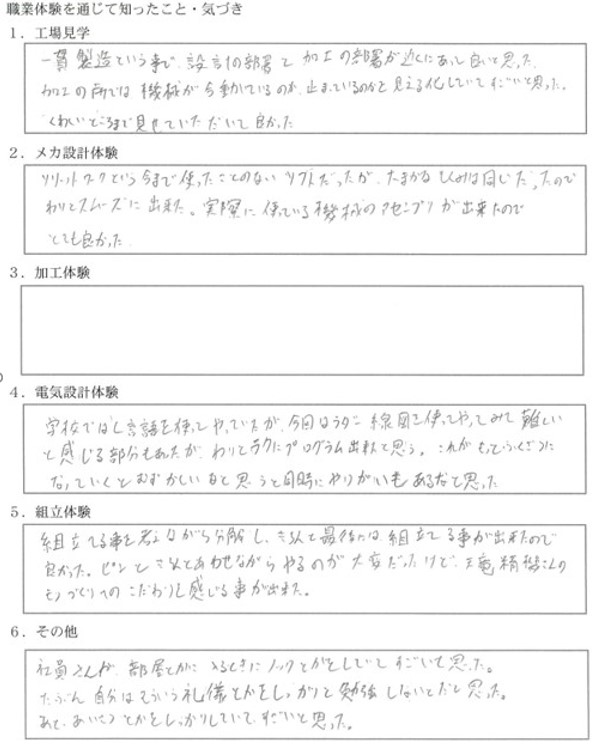 職業体験を通じて知ったこと・気づき
1．工場見学
一貫製造という事で、設計の部署と加工の部署が近くにあって良いと思った。
加工の所では機械が今動いているのか、止まっているのかと見える化していてすごいと思った。
くわしいところまで見せていただいて良かった
2．メカ設計体験
ソリットワークという今まで使ったことのないソフトだったが、大まかなしくみは同じだったので
わりとスムーズに出来た。実際に使っている機械のアセンブリが出来たので
とても良かった
3．加工体験
4．電気設計体験
学校ではC言語を使ってやっていたが、今回はラダー線図を使ってやってみて難しい
と感じる部分もあったが、わりとラクにプログラム出来たと思う。これがもってふくざつに
なっていくとむずかしいなと思うと同時にやりがいもあるなと思った
5．組立体験
組立てる事を考えながら分解し、きちんと最後には組立てる事が出来たので
良かった。ピンときちんとあわせながらやるのが大変だったけど、竜精機さんの
モノづくりへのこだわりも感じる事が出来た。
6．その他
社員さんが、部屋とかに入るときにノックとかをしていてすごいと思った。
たぶん自分はそういう礼儀とかをしっかりと勉強しないとだと思った。
あと、あいさつとかをしっかりしていて、すごいと思った。